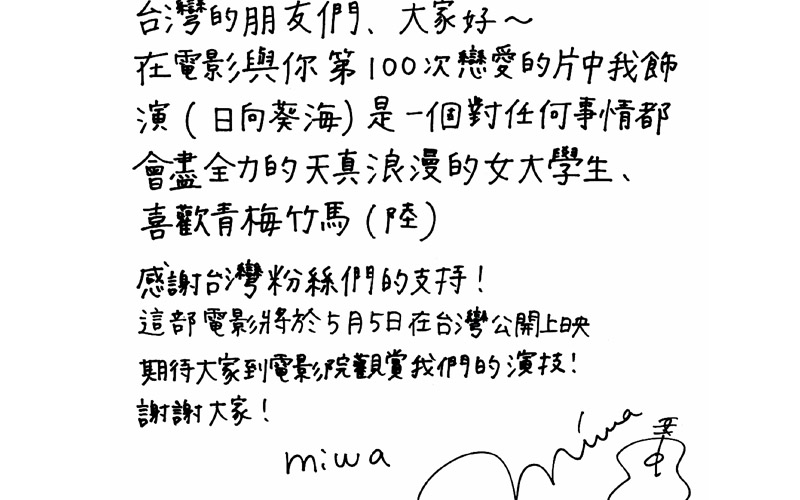 台灣的朋友們、大家好～
在電影與你第100次戀愛的片中我飾
演(日向葵海)是一個對任何事情都
會盡全力的天真浪漫的女大學生、
喜歡青梅竹馬(陸)
感謝台灣粉絲們的支持!
這部電影將於5月5日在台灣公開上映
期待大家到電影院觀賞我們的演技!
謝謝大家!
miwa
miwa